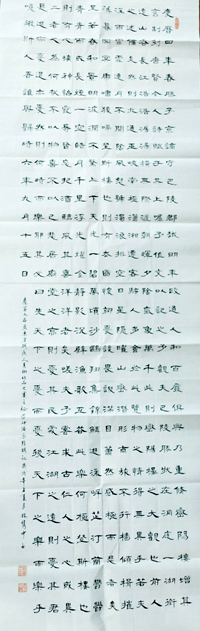 慶曆四年春滕子京謫守巴陵郡越明年政通人和百廢俱興乃重修岳陽樓增其
舊制刻唐賢今人詩賦於其上屬予作文以記之予觀夫巴陵勝狀在洞庭一湖銜
遠山吞長江浩浩湯湯橫無際涯朝暉夕陰氣象萬千此則岳陽樓之大觀也前人
之述備矣然則北通巫峽南極瀟湘遷客騷人多會於此覽物之情得無異乎若夫
霪雨霏霏連月不開陰風怒號濁浪排空日星隱曜山岳潛形商旅不行檣傾楫摧
薄暮冥冥虎嘯猿啼登斯樓也則有去國懷鄉憂讒畏譏滿目蕭然感極而悲者矣
至若春和景明波瀾不驚上下天光一碧萬頃沙鷗翔集錦鱗游泳岸芷汀蘭郁郁
青青而或長煙一空皓月千里浮光躍金靜影沉璧漁歌互答此樂何極登斯樓也
則有心曠神怡寵辱偕忘把酒臨風其喜洋洋者矣嗟夫予嘗求古仁人之心或異
二者之為何哉不以物喜不以己悲居廟堂之高則憂其民處江湖之遠則憂其君
是進亦憂退亦憂然則何時而樂耶其必曰先天下之憂而憂後天下之樂而樂乎
噫微斯人吾誰與歸時六年九月十五日